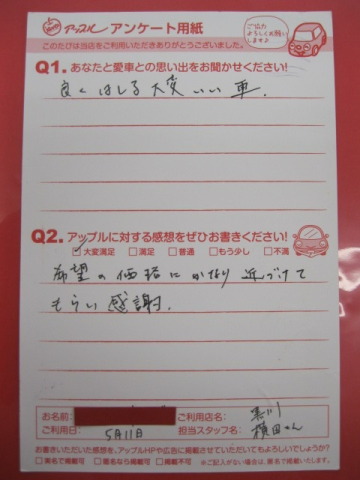 アップル アンケート用紙
ご協力
よろしくお願い
します♪
このたびは当店をご利用いただきありがとうございました。
Q1. あなたと愛車との思い出をお聞かせください!
良くはしる大変いい車.
Q2. アップルに対する感想をぜひお書きください!
大変満足 満足 普通 もう少し 不満
希望の価格にかなり近づけて
もらい感謝.
お名前:
ご利用店名: 黒川
ご利用日: 5月11日
担当スタッフ名: 横田さん
お書きいただいた感想を、アップルHPや広告に掲載させていただいてもよろしいでしょうか?
実名で掲載可 匿名なら掲載可 掲載不可 ※ご記入がない場合は、匿名で掲載いたします。